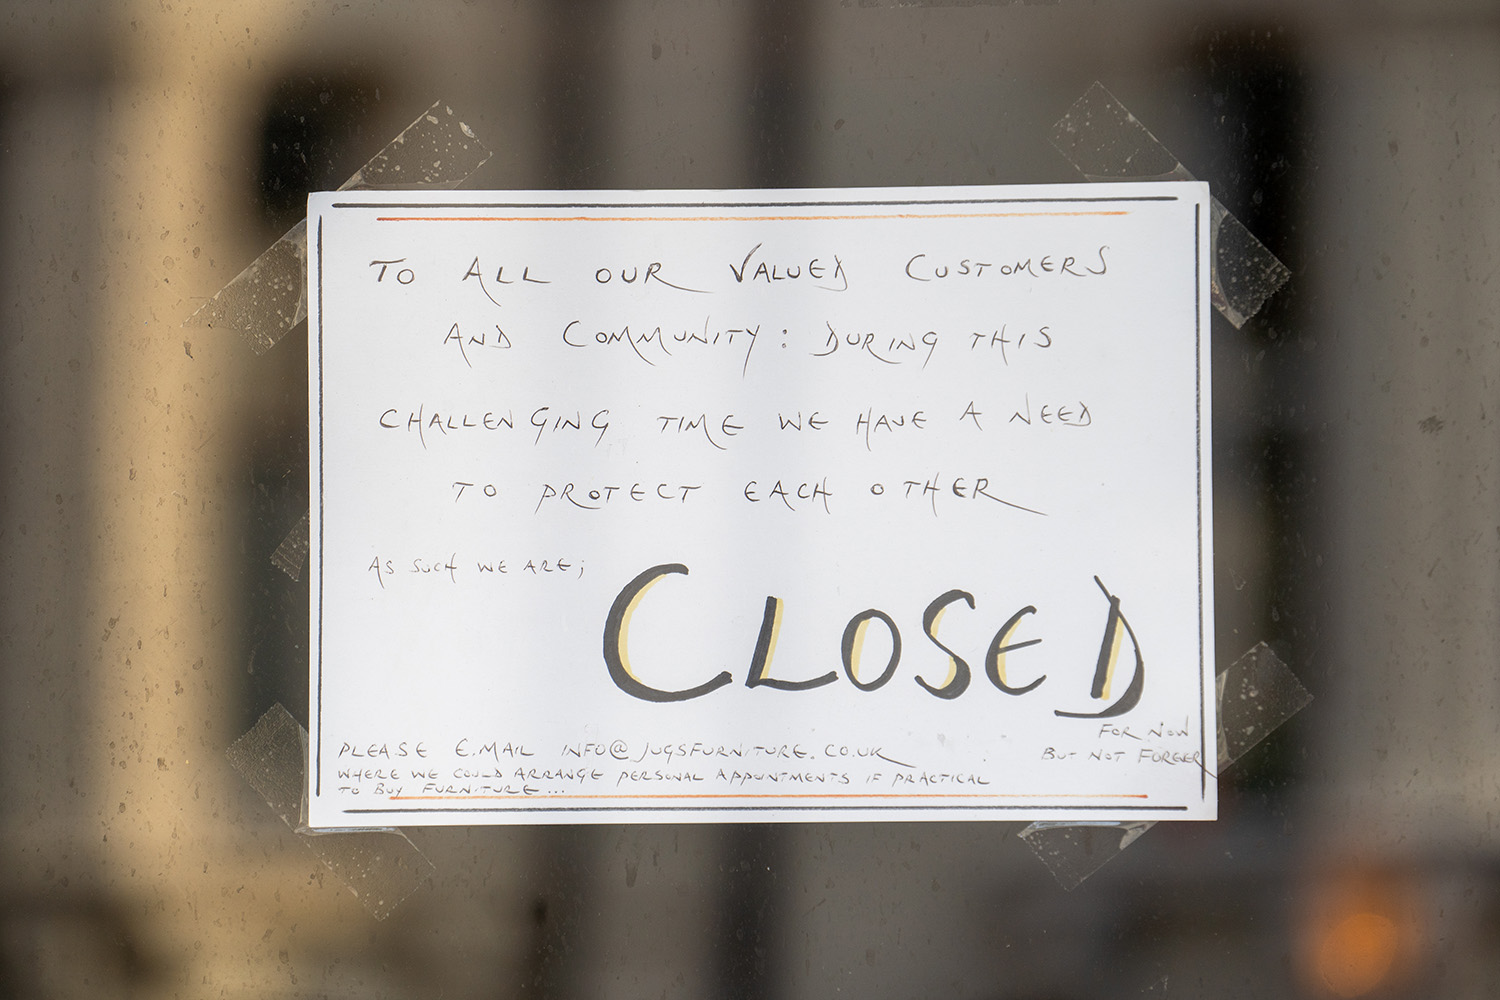 TO ALL OUR VALUED CUSTOMERS
AND COMMUNITY: DURING THIS
CHALLENGING TIME WE HAVE A NEED
TO PROTECT EACH OTHER
AS SUCH WE ARE;
CLOSED
FOR NOW
BUT NOT FORGER
PLEASE E.MAIL INFO@JUGSFURNITURE.CO.UK
WHERE WE COULD ARRANGE PERSONAL APPOINTMENTS IF PRACTICAL
TO BUY FURNITURE...